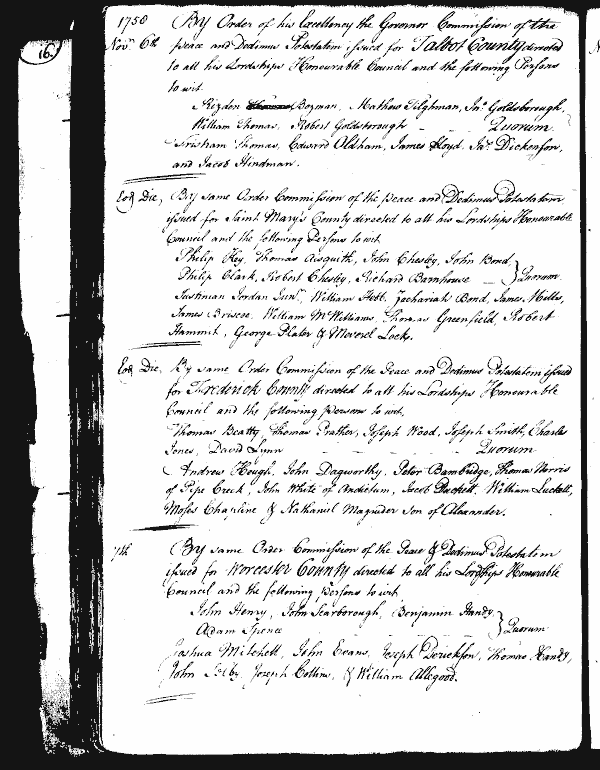 16.
1750 By Order of his Excellency the Governor Commission of the
Novr 6th peace and Dedimus Potestatem issued for Talbot County directed
to all his Lordships Honourable Council and the following Persons
to wit
Rizdon Bozman, Mathew Tilghman, Jno Goldsborough,
William Thomas, Robert Goldsborough - - Quorum
Tristram Thomas, Edward Oldham, James Lloyd, Jas Dickenson,
and Jacob Hindman.
Eod Die, By same Order Commission of the peace and Dedimus Potestatem
issued for Saint Mary's County directed to all his Lordships Honourable
Council and the following Persons to wit
Philip Key, Thomas Aisquith, John Chesley, John Bond
Philip Clark, Robert Chesley, Richard Barnhouse - } Quorum
Justinian Jordan Junr, William Hebb, Zachariah Bond, James Mills,
James Briscoe, William McWilliams, Thomas Greenfield, Robert
Hammit, George Plater & Mevorel Lock.
Eod Die, By same Order Commission of the Peace and Dedimus Potestatem issued
for Frederick County directed to all his Lordships Honourable
Council and the following persons to wit,
Thomas Beatty, Thomas Prather, Joseph Wood, Joseph Smith, Charles
Jones, David Lynn - - - Quorum
Andrew Hough, John Dagworthy, Peter Bambridge, Thomas Norris
of Pipe Creek, John White of Andietum, Jacob Duckett, William Luckett,
Moses Chapline & Nathaniel Magruder Son of Alexander.
7th By same Order Commission of the Peace & Dedimus Potestatem
issued for Worcester County directed to all his Lordships Honourable
Council and the following Persons to wit
John Henry, John Scarborough, Benjamin Handy
Adam Spence } Quorum
Joshua Mitchell, John Evans, Joseph Derickson, Thomas Handy,
John Selby, Joseph Collins, & William Allegood.